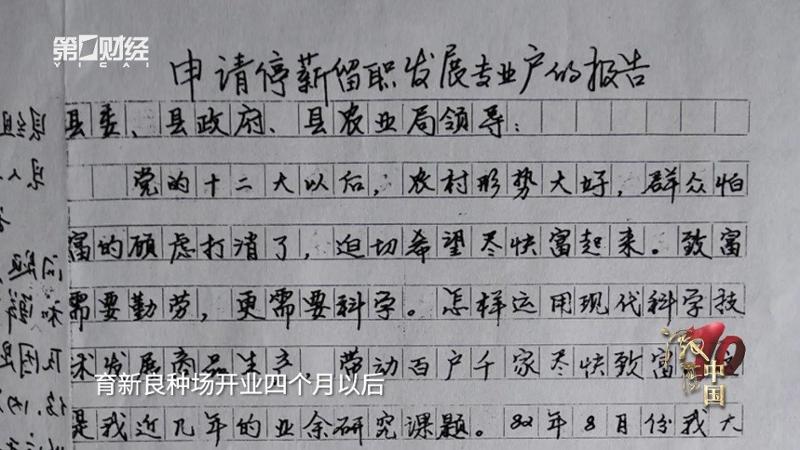 第1财经
YICAI
申请停薪留职发展专业户的报告
县委、县政府、县农业局领导：
党的十二大以后，农村形势大好，群众怕
富的顾虑打消了，迫切希望尽快富起来。致富
需要勤劳，更需要科学。怎样运用现代科学技
术发展商品生产、带动百户千家尽快致富
育新良种场开业四个月以后
激荡
中国
40
是我近几年的业余研究课题。82年8月份我大